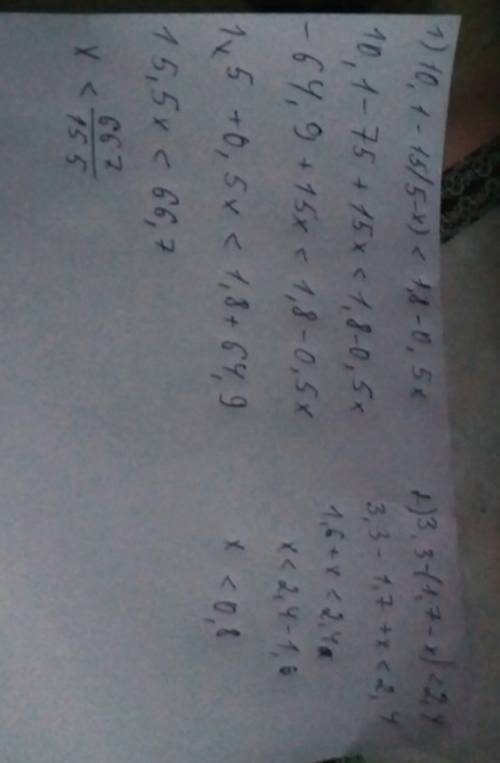 1) 10,1 - 15(5-x) < 1,8 - 0,5x
10,1 - 75 + 15x < 1,8 - 0,5x
- 64,9 + 15x < 1,8 - 0,5x
1x5 + 0,5x < 1,8 + 64,9
15,5x < 66,7
x < 667/155
2) 3,3-(1,7-x) < 2,4
3,3 - 1,7 + x < 2,4
1,6 + x < 2,4
x < 2,4 - 1,6
x < 0,8